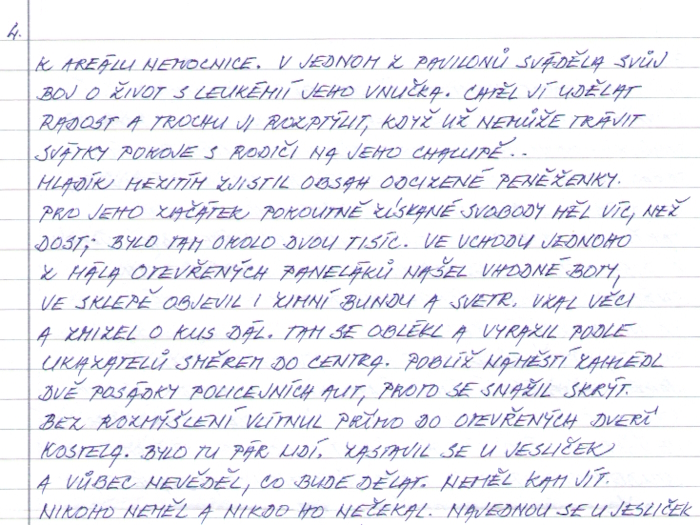 4.
K AREÁLU NEMOCNICE. V JEDNOM Z PAVILONŮ SVÁDĚLA SVŮJ
BOJ O ŽIVOT S LEUKÉMIÍ JEHO VNUČKA. CHTĚL JÍ UDĚLAT
RADOST A TROCHU JI ROZPTÝLIT, KDYŽ UŽ NEMŮŽE TRÁVIT
SVÁTKY POKOJE S RODIČI NA JEHO CHALUPĚ..
MLADÍK MEZITÍM ZJISTIL OBSAH ODCIZENÉ PENĚŽENKY.
PRO JEHO ZAČÁTEK POKOUTNĚ ZÍSKANÉ SVOBODY MĚL VÍC, NEŽ
DOST; BYLO TAM OKOLO DVOU TISÍC. VE VCHODU JEDNOHO
Z MÁLA OTEVŘENÝCH PANELÁKŮ NAŠEL VHODNÉ BOTY,
VE SKLEPĚ OBJEVIL I ZIMNÍ BUNDU A SVETR. VZAL VĚCI
A ZMIZEL O KUS DÁL. TAM SE OBLÉKL A VYRAZIL PODLE
UKAZATELŮ SMĚREM DO CENTRA. POBLÍŽ NÁMĚSTÍ ZAHLÉDL
DVĚ POSÁDKY POLICEJNÍCH AUT, PROTO SE SNAŽIL SKRÝT.
BEZ ROZMÝŠLENÍ VLÍTNUL PŘÍMO DO OTEVŘENÝCH DVEŘÍ
KOSTELA. BYLO TU PÁR LIDÍ. ZASTAVIL SE U JESLIČEK
A VŮBEC NEVĚDĚL, CO BUDE DĚLAT. NEMĚL KAM JÍT.
NIKOHO NEMĚL A NIKDO HO NEČEKAL. NAJEDNOU SE U JESLIČEK